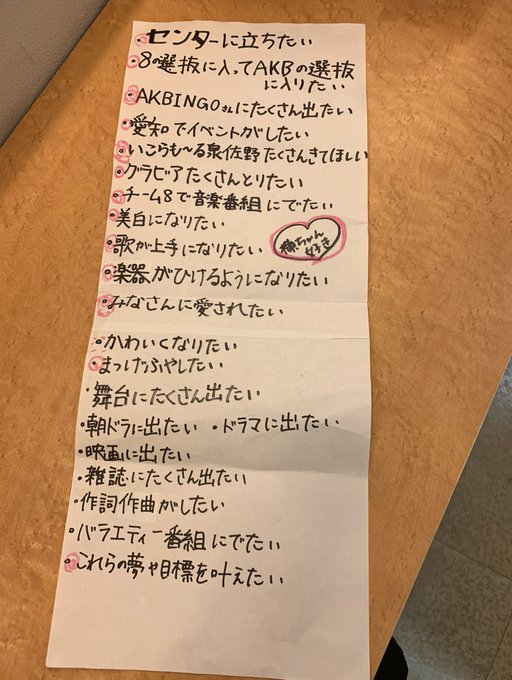 ・センターに立ちたい
・8の選抜に入ってAKBの選抜
に入りたい
・AKBINGOさんにたくさん出たい
・愛知でイベントがしたい
・いこらも〜る泉佐野たくさんきてほしい
・グラビアたくさんとりたい
・チーム8で音楽番組にでたい
・美白になりたい
・歌が上手になりたい
ちゃん
好き
・楽器がひけるようになりたい
・みなさんに愛されたい
・かわいくなりたい
・まつげふやしたい
・舞台にたくさん出たい
・朝ドラに出たい ・ドラマに出たい
・映画に出たい
・雑誌にたくさん出たい
・作詞作曲がしたい
・バラエティー番組にでたい
・これらの夢や目標を叶えたい